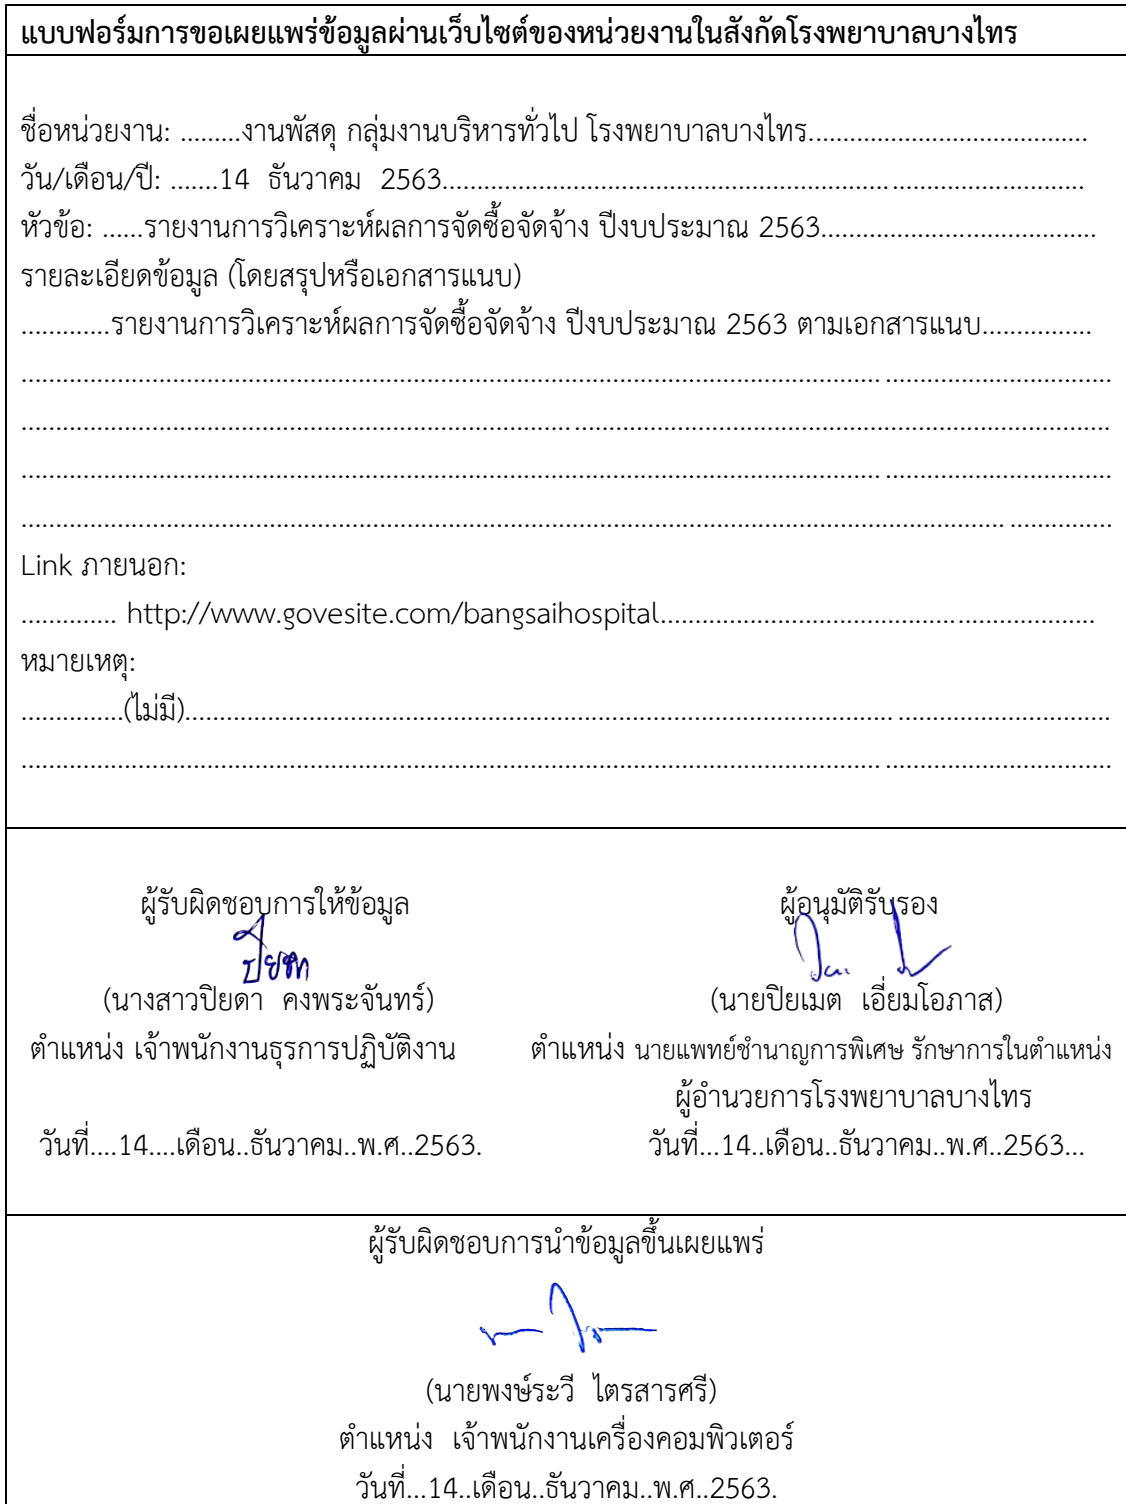 แบบฟอร์มการขอเผยแพร่ข้อมูลผ่านเว็บไซต์ของหน่วยงานในสังกัดโรงพยาบาลบางไทร
ชื่อหน่วยงาน: .........งานพัสดุ กลุ่มงานบริหารทั่วไป โรงพยาบาลบางไทร.........................................
วัน/เดือน/ปี: .......14 ธันวาคม 2563.............................................................................................
หัวข้อ: ......รายงานการวิเคราะห์ผลการจัดซื้อจัดจ้าง ปีงบประมาณ 2563........................................
รายละเอียดข้อมูล (โดยสรุปหรือเอกสารแนบ)
.............รายงานการวิเคราะห์ผลการจัดซื้อจัดจ้าง ปีงบประมาณ 2563 ตามเอกสารแนบ................
Link ภายนอก:
.............. http://www.govesite.com/bangsaihospital...............................................................
หมายเหตุ:
...............(ไม่มี).......................................................................................................................................
ผู้รับผิดชอบการให้ข้อมูล ผู้อนุมัติรับรอง
ปิยดา
(นางสาวปิยดา คงพระจันทร์) (นายปิยเมต เอี่ยมโอภาส)
ตำแหน่ง เจ้าพนักงานธุรการปฏิบัติงาน ตำแหน่ง นายแพทย์ชำนาญการพิเศษ รักษาการในตำแหน่ง
ผู้อำนวยการโรงพยาบาลบางไทร
วันที่....14....เดือน..ธันวาคม..พ.ศ..2563. วันที่...14..เดือน..ธันวาคม..พ.ศ..2563...
ผู้รับผิดชอบการนำข้อมูลขึ้นเผยแพร่
(นายพงษ์ระวี ไตรสารศรี)
ตำแหน่ง เจ้าพนักงานเครื่องคอมพิวเตอร์
วันที่...14..เดือน..ธันวาคม..พ.ศ..2563.